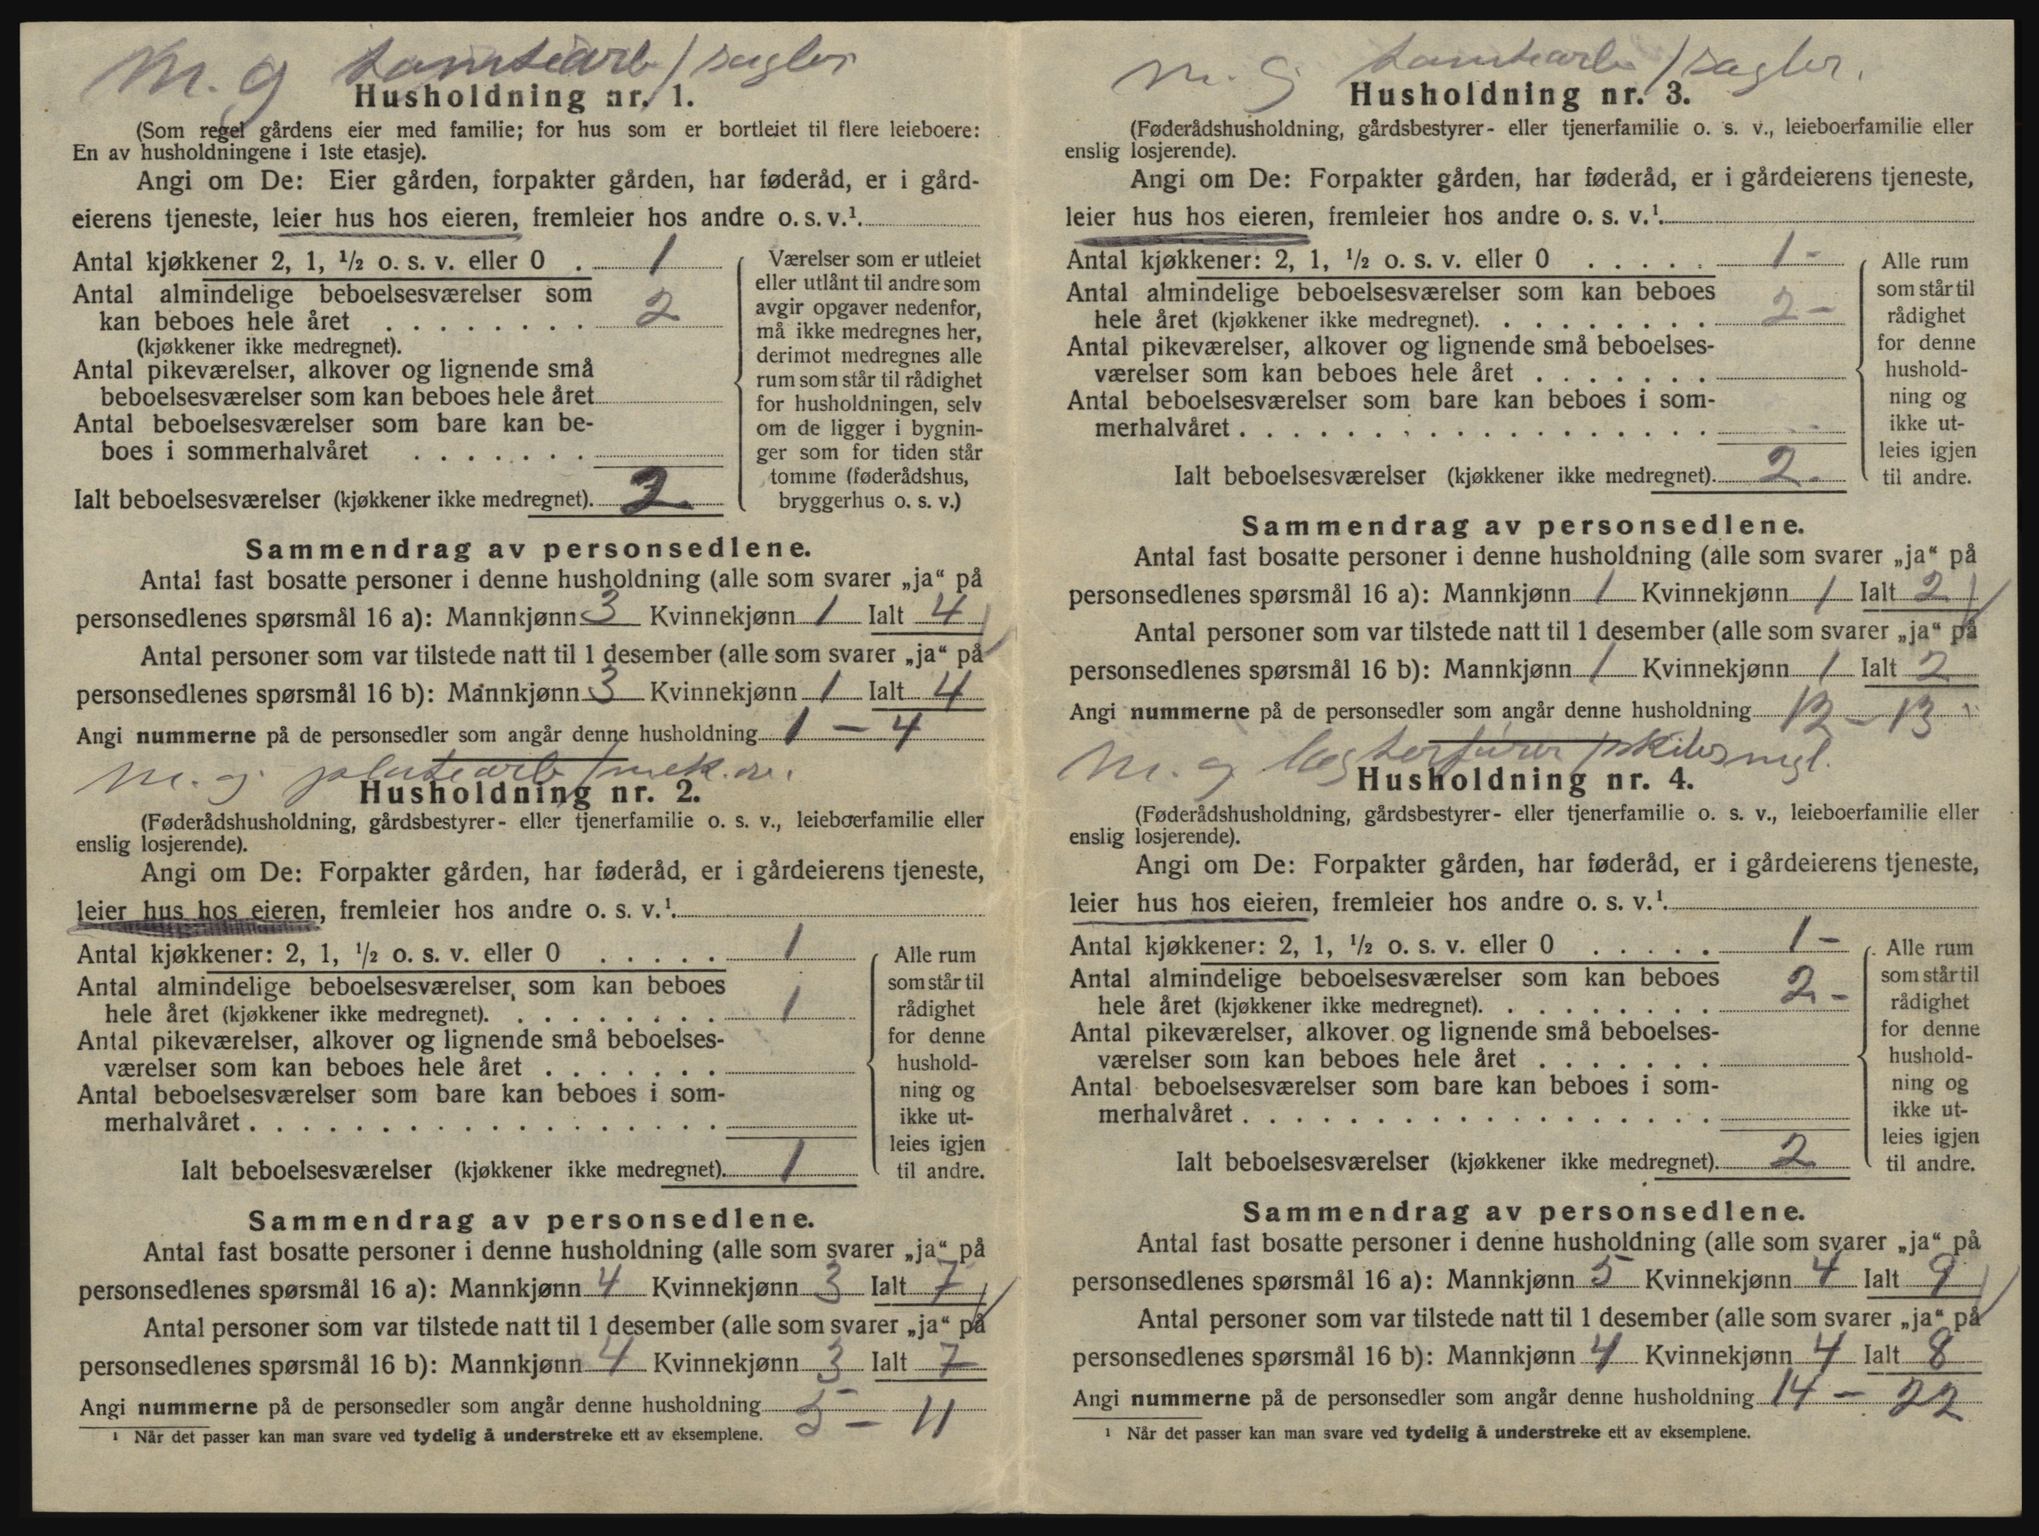 M. g tomtearb / sagbr
Husholdning nr. 1.
(Som regel gårdens eier med familie; for hus som er bortleiet til flere leieboere:
En av husholdningene i 1ste etasje).
Angi om De: Eier gården, forpakter gården, har føderåd, er i gård-
eierens tjeneste, leier hus hos eieren, fremleier hos andre o. s. v.¹
Antal kjøkkener 2, 1, ½ o. s. v. eller 0 . 1
Antal almindelige beboelsesværelser som
kan beboes hele året . . . . . . . . 2
(kjøkkener ikke medregnet).
Antal pikeværelser, alkover og lignende små
beboelsesværelser som kan beboes hele året
Antal beboelsesværelser som bare kan be-
boes i sommerhalvåret . . . . . . .
Ialt beboelsesværelser (kjøkkener ikke medregnet). 2
Værelser som er utleiet
eller utlånt til andre som
avgir opgaver nedenfor,
må ikke medregnes her,
derimot medregnes alle
rum som står til rådighet
for husholdningen, selv
om de ligger i bygnin-
ger som for tiden står
tomme (føderådshus,
bryggerhus o. s. v.)
Sammendrag av personsedlene.
Antal fast bosatte personer i denne husholdning (alle som svarer „ja“ på
personsedlenes spørsmål 16 a): Mannkjønn 3 Kvinnekjønn 1 Ialt 4
Antal personer som var tilstede natt til 1 desember (alle som svarer „ja“ på
personsedlenes spørsmål 16 b): Mannkjønn 3 Kvinnekjønn 1 Ialt 4
Angi nummerne på de personsedler som angår denne husholdning 1 – 4
M. g platearb / mek.
Husholdning nr. 2.
(Føderådshusholdning, gårdsbestyrer- eller tjenerfamilie o. s. v., leieboerfamilie eller
enslig losjerende).
Angi om De: Forpakter gården, har føderåd, er i gårdeierens tjeneste,
leier hus hos eieren, fremleier hos andre o. s. v.¹
Antal kjøkkener: 2, 1, ½ o. s. v. eller 0 . . . . . 1
Antal almindelige beboelsesværelser som kan beboes
hele året (kjøkkener ikke medregnet). . . . . . . . . 1
Antal pikeværelser, alkover og lignende små beboelses-
værelser som kan beboes hele året . . . . . . .
Antal beboelsesværelser som bare kan beboes i som-
merhalvåret . . . . . . . . . . . . . . . . . .
Ialt beboelsesværelser (kjøkkener ikke medregnet). 1
Alle rum
som står til
rådighet
for denne
hushold-
ning og
ikke ut-
leies igjen
til andre.
Sammendrag av personsedlene.
Antal fast bosatte personer i denne husholdning (alle som svarer „ja“ på
personsedlenes spørsmål 16 a): Mannkjønn 4 Kvinnekjønn 3 Ialt 7
Antal personer som var tilstede natt til 1 desember (alle som svarer „ja“ på
personsedlenes spørsmål 16 b): Mannkjønn 4 Kvinnekjønn 3 Ialt 7
Angi nummerne på de personsedler som angår denne husholdning 5 – 11
¹ Når det passer kan man svare ved tydelig å understreke ett av eksemplene.
M. g tomtearb / sagbr.
Husholdning nr. 3.
(Føderådshusholdning, gårdsbestyrer- eller tjenerfamilie o. s. v., leieboerfamilie eller
enslig losjerende).
Angi om De: Forpakter gården, har føderåd, er i gårdeierens tjeneste,
leier hus hos eieren, fremleier hos andre o. s. v.¹
Antal kjøkkener: 2, 1, ½ o. s. v. eller 0 . . . . . 1 –
Antal almindelige beboelsesværelser som kan beboes
hele året (kjøkkener ikke medregnet). . . . . . . . . 2 –
Antal pikeværelser, alkover og lignende små beboelses-
værelser som kan beboes hele året . . . . . . .
Antal beboelsesværelser som bare kan beboes i som-
merhalvåret . . . . . . . . . . . . . . . . . .
Ialt beboelsesværelser (kjøkkener ikke medregnet). 2 -
Alle rum
som står til
rådighet
for denne
hushold-
ning og
ikke ut-
leies igjen
til andre.
Sammendrag av personsedlene.
Antal fast bosatte personer i denne husholdning (alle som svarer „ja“ på
personsedlenes spørsmål 16 a): Mannkjønn 1 Kvinnekjønn 1 Ialt 2
Antal personer som var tilstede natt til 1 desember (alle som svarer „ja“ på
personsedlenes spørsmål 16 b): Mannkjønn 1 Kvinnekjønn 1 Ialt 2
Angi nummerne på de personsedler som angår denne husholdning 12 – 13
M. g
Husholdning nr. 4.
(Føderådshusholdning, gårdsbestyrer- eller tjenerfamilie o. s. v., leieboerfamilie eller
enslig losjerende).
Angi om De: Forpakter gården, har føderåd, er i gårdeierens tjeneste,
leier hus hos eieren, fremleier hos andre o. s. v.¹
Antal kjøkkener: 2, 1, ½ o. s. v. eller 0 . . . . . 1 –
Antal almindelige beboelsesværelser som kan beboes
hele året (kjøkkener ikke medregnet). . . . . . . . . 2 –
Antal pikeværelser, alkover og lignende små beboelses-
værelser som kan beboes hele året . . . . . . .
Antal beboelsesværelser som bare kan beboes i som-
merhalvåret . . . . . . . . . . . . . . . . . .
Ialt beboelsesværelser (kjøkkener ikke medregnet). 2
Alle rum
som står til
rådighet
for denne
hushold-
ning og
ikke ut-
leies igjen
til andre.
Sammendrag av personsedlene.
Antal fast bosatte personer i denne husholdning (alle som svarer „ja“ på
personsedlenes spørsmål 16 a): Mannkjønn 5 Kvinnekjønn 4 Ialt 9
Antal personer som var tilstede natt til 1 desember (alle som svarer „ja“ på
personsedlenes spørsmål 16 b): Mannkjønn 4 Kvinnekjønn 4 Ialt 8
Angi nummerne på de personsedler som angår denne husholdning 14 – 22
¹ Når det passer kan man svare ved tydelig å understreke ett av eksemplene.